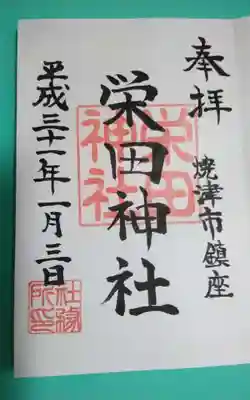 奉拝
焼津市鎮座
栄田神社
栄田神社
平成三十一年一月三日
社務所印